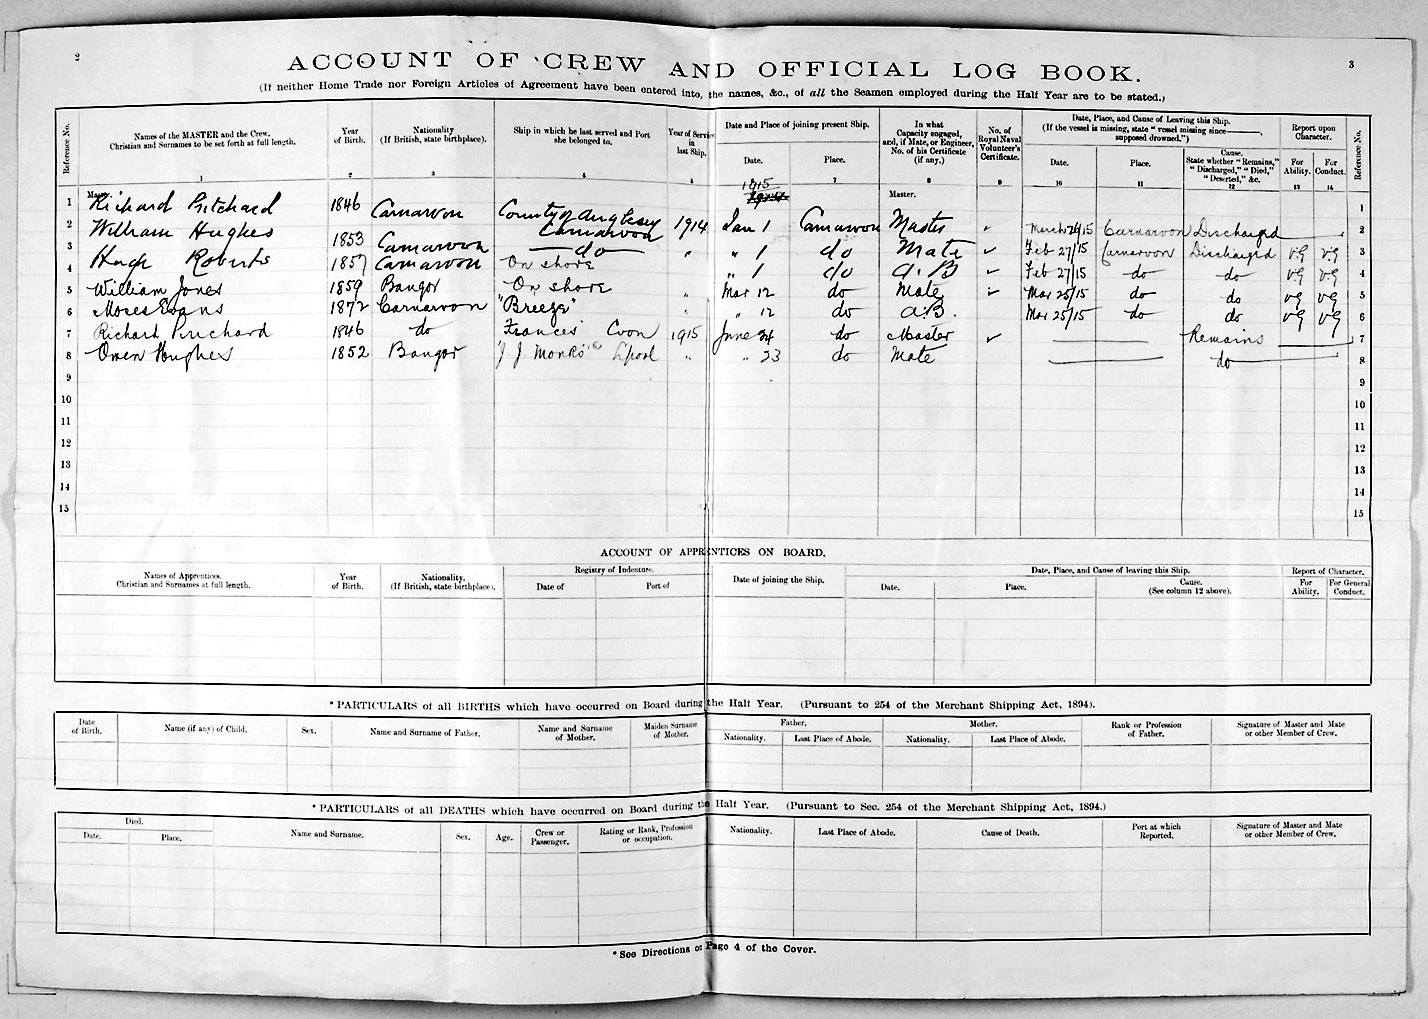 2
3
ACCOUNT OF CREW AND OFFICIAL LOG BOOK.
(If neither Home Trade nor Foreign Articles of Agreement have been entered into, the names, &c., of all the Seamen employed during the Half Year are to be stated.)
Reference No.
Names of the MASTER and the Crew.
Christian and Surnames to be set forth at full length.
1
Year of Birth.
2
Nationality
(If British, state birthplace).
3
Ship in which he last served and Port she belonged to.
4
Year of Service in last Ship.
Date and Place of joining present Ship.
Date.
Place.
7
In what Capacity engaged, and, if Mate, or Engineer, No. of his Certificate (if any.)
8
No. of Royal Naval Volunteer's Certificate.
9
Date, Place, and Cause of Leaving this Ship.
(If the vessel is missing, state "vessel missing since ———, supposed drowned.")
Date.
10
Place.
11
Cause.
State whether "Remains," "Discharged," "Died," "Deserted," &c.
12
Report upon Character.
For Ability.
13
For Conduct.
14
Reference No.
1915
1 Richard Pritchard 1846 Carnarvon County of Anglesey Carnarvon 1914 Jan 1 Carnarvon Master. Master March 26/15 Carnarvon Discharged 1
2 William Hughes 1853 Carnarvon do " " 1 do Mate Feb 27/15 Carnarvon Discharged v.g v.g 2
3 Hugh Roberts 1857 Carnarvon On shore " 1 do A.B Feb 27/15 do do vg vg 3
4
5 William Jones 1859 Bangor On shore " Mar 12 do Mate Mar 25/15 do do vg vg 5
6 Moses Evans 1872 Carnarvon "Breeze" " 12 do A.B. Mar 25/15 do do vg vg 6
7 Richard Prichard 1846 do Frances 1915 June 24 do Master Remains 7
8 Owen Hughes 1852 Bangor J J Monks L'pool " " 23 do Mate do 8
9 9
10 10
11 11
12 12
13 13
14 14
15 15
ACCOUNT OF APPRENTICES ON BOARD.
Names of Apprentices.
Christian and Surnames at full length.
Year of Birth.
Nationality.
(If British, state birthplace).
Registry of Indenture.
Date of
Port of
Date of joining the Ship.
Date, Place, and Cause of leaving this Ship.
Date.
Place.
Cause.
(See column 12 above).
Report of Character.
For Ability.
For General Conduct.
*PARTICULARS of all BIRTHS which have occurred on Board during the Half Year. (Pursuant to 254 of the Merchant Shipping Act, 1894).
Date of Birth.
Name (if any) of Child.
Sex.
Name and Surname of Father.
Name and Surname of Mother.
Maiden Surname of Mother.
Father.
Nationality.
Last Place of Abode.
Mother.
Nationality.
Last Place of Abode.
Rank or Profession of Father.
Signature of Master and Mate or other Member of Crew.
*PARTICULARS of all DEATHS which have occurred on Board during the Half Year. (Pursuant to Sec. 254 of the Merchant Shipping Act, 1894.)
Died.
Date.
Place.
Name and Surname.
Sex.
Age.
Crew or Passenger.
Rating or Rank, Profession or occupation.
Nationality.
Last Place of Abode.
Cause of Death.
Port at which Reported.
Signature of Master and Mate or other Member of Crew.
*See Directions on Page 4 of the Cover.